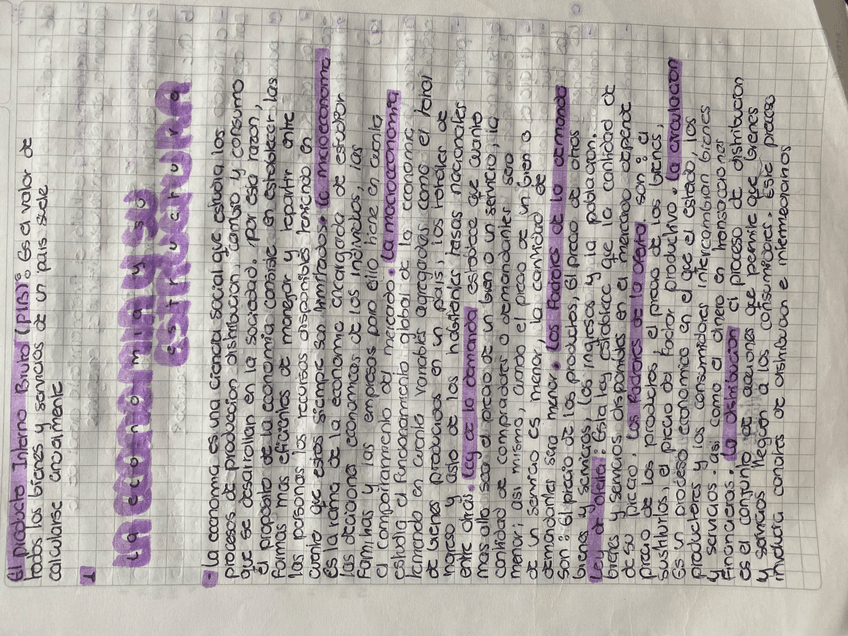 El producto Interno Bruto (PIB): Es el valor de
todos los bienes y servicios de un pais suele
calcularse anualmente
1
LA ECONOMIA Y SU
ESTRUCTURA
- La economia es una ciencia social que estudia los
procesos de produccion distribucion, cambio y consumo
que se desarrollan en la sociedad. por esta razon,
el proposito de la economia consiste en establecer las
formas mas eficientes de manejar y repartir entre
las personas los recursos disponibles teniendo en
cuenta que estos siempre son limitados. La microeconomia
es la rama de la economia encargada de estudiar
las decisiones economicas de los individuos, las
familias y las empresas para ello tiene en cuenta
el comportamiento del mercado. La macroeconomia
estudia el funcionamiento global de la economia
tomando en cuenta variables agregadas como el total
de bienes producidos en un pais, los totales de
ingreso y gasto de los habitantes tasas nacionales
entre otras. Ley de la demanda establece que cuanto
mas alto sea el precio de un bien o un servicio, la
cantidad de compradores o demandantes sera
menor; asi mismo, cuando el precio de un bien o
de un servicio es menor, la cantidad de
demandantes sera menor. Los factores de la demanda
son: El precio de los productos, El precio de otros
bienes y servicios, los ingresos y la poblacion.
Ley de oferta: Esta ley establece que la cantidad de
bienes y servicios disponibles en el mercado depende
de su precio. Los factores de la oferta son: el
precio de los productos, el precio de los bienes
sustitutos, el precio del factor productivo. La circulacion
Es un proceso economico en el que el estado, los
productores y los consumidores intercambian bienes
y servicios. asi como el dinero en transacciones
financieras. La distribucion el proceso de distribucion
es el conjunto de acciones que permite que bienes
y servicios lleguen a los consumidores. Este proceso
involucra canales de distribucion e intermediarios